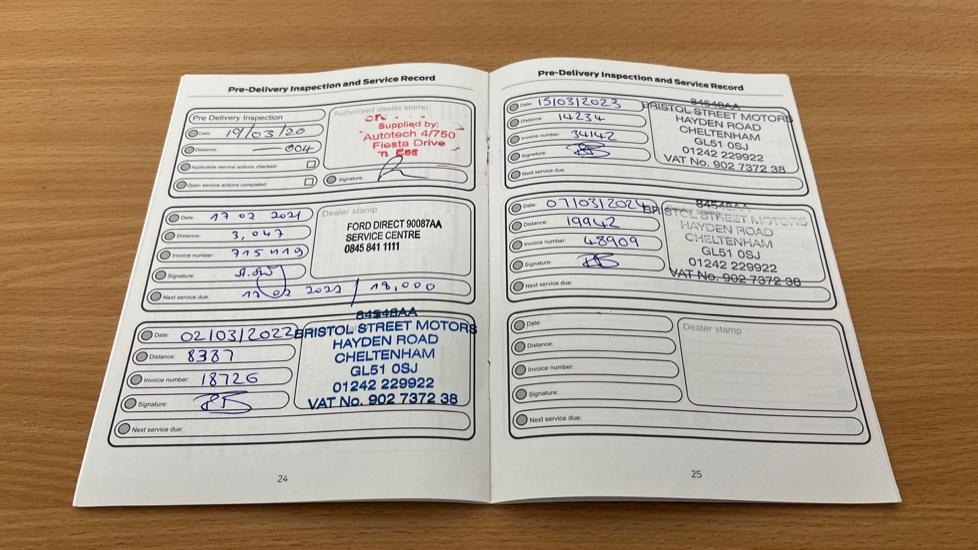 Pre-Delivery Inspection and Service Record
Pre Delivery Inspection
Date: 19/03/20
Distance: 004
Applicable service actions checked:
Open service actions completed:
Authorised dealer stamp:
Supplied by:
Autotech 4/750
Fiesta Drive
Signature:
Date: 17 02 2021
Distance: 3,047
Invoice number: 715419
Signature:
Next service due: 17 02 2022 / 18,000
Dealer stamp
FORD DIRECT 90087AA
SERVICE CENTRE
0845 841 1111
Date: 02/03/2022
Distance: 8387
Invoice number: 18726
Signature:
Next service due:
84548AA
BRISTOL STREET MOTORS
HAYDEN ROAD
CHELTENHAM
GL51 0SJ
01242 229922
VAT No. 902 7372 38
24
Pre-Delivery Inspection and Service Record
Date: 15/03/2023
Distance: 14234
Invoice number: 34142
Signature:
Next service due:
84548AA
BRISTOL STREET MOTORS
HAYDEN ROAD
CHELTENHAM
GL51 0SJ
01242 229922
VAT No. 902 7372 38
Date: 07/03/2024
Distance: 19942
Invoice number: 48909
Signature:
Next service due:
BRISTOL STREET MOTORS
HAYDEN ROAD
CHELTENHAM
GL51 0SJ
01242 229922
VAT No. 902 7372 38
Date:
Distance:
Invoice number:
Signature:
Next service due:
Dealer stamp
25